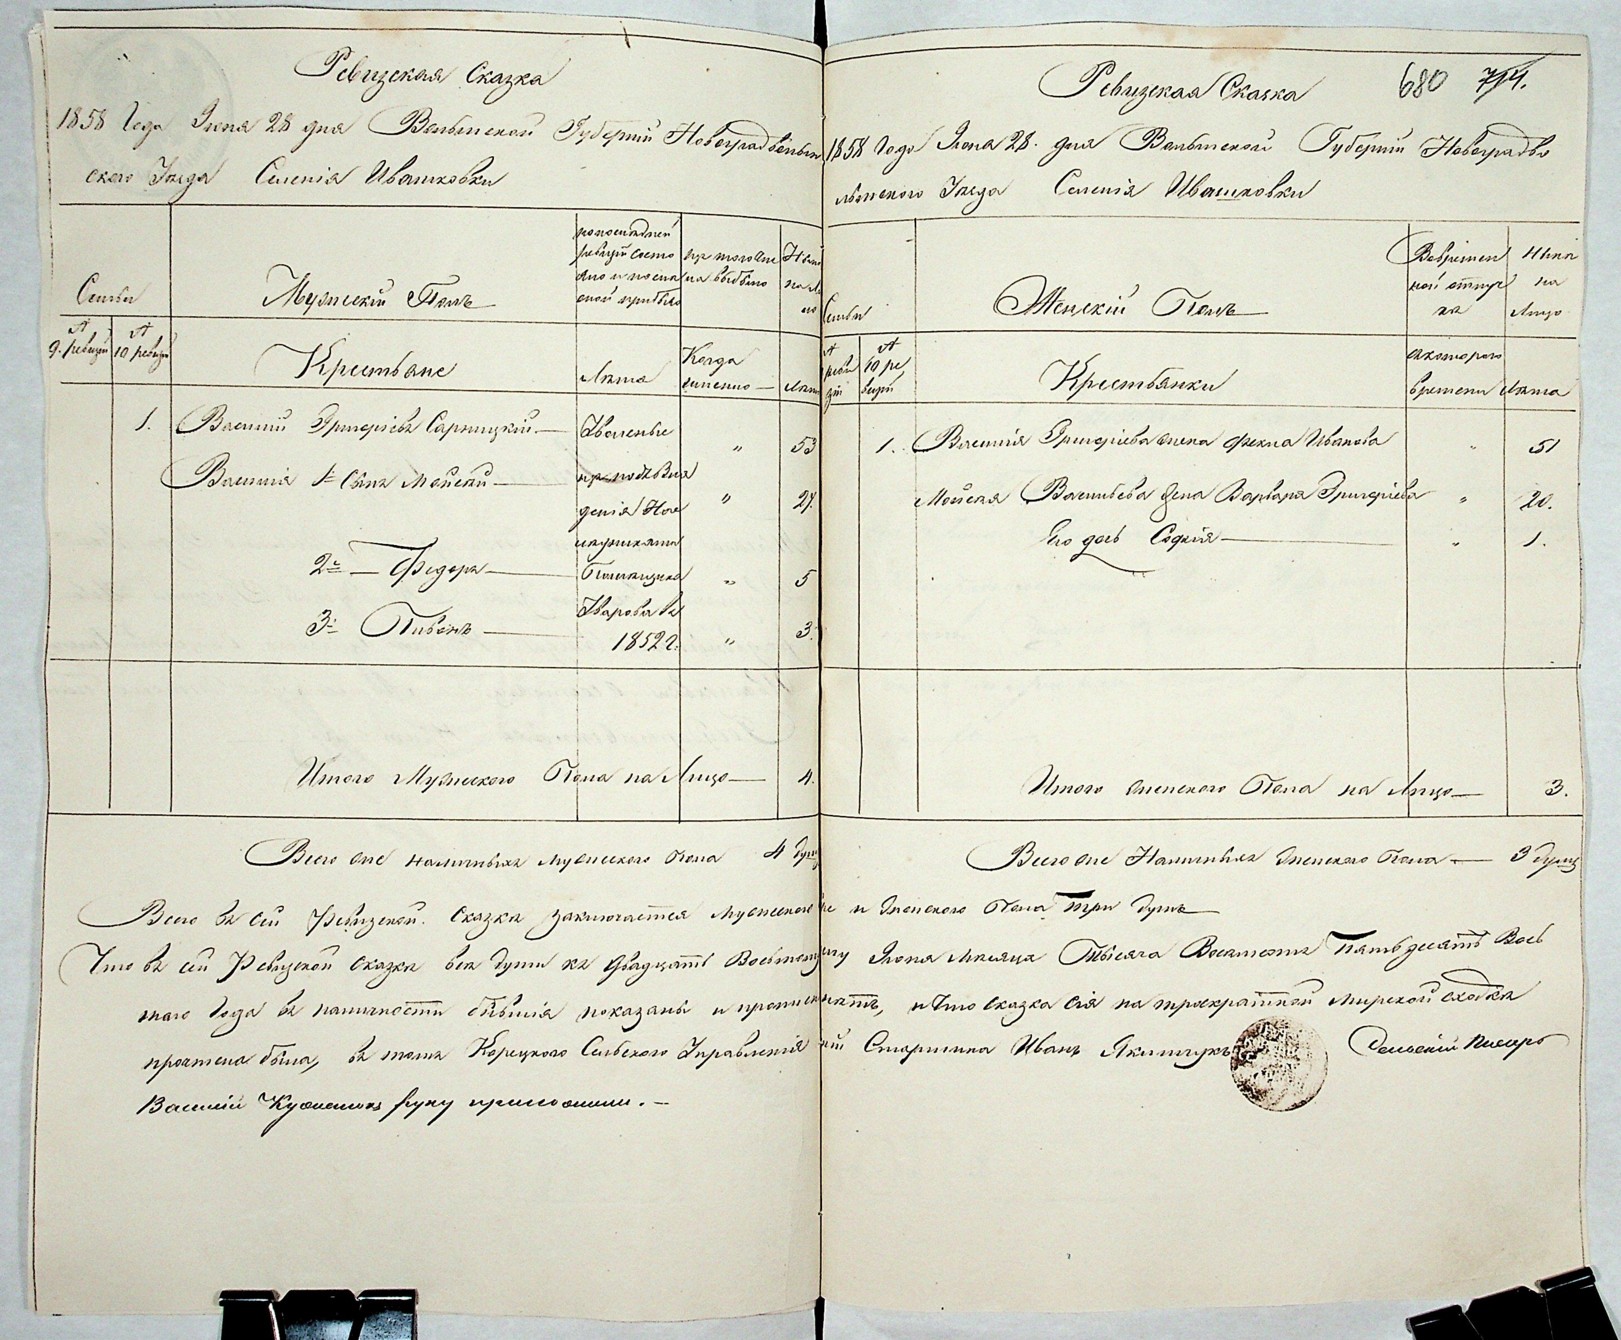 Ревизская Сказка
1858 Года Июня 28 дня Волынской Губернии Новоградволын
ского Уезда Селенія Ивашковки
Семьи
Мужескій Полъ
по последней
ревизіи состо
яло и после
оной прибыло
изъ того чис
ла выбыло
Ныне
на ли
цо
№
9. ревизіи
№
10 ревизіи
Крестьяне
Лѣта
Когда
именно
Лѣта
1. Василій Григоріевъ Сарницкій
Уволенные
" 53
Василія 1й Сынъ Мойсей
" 27.
денія Пом
2й Федоръ
Помещика
" 5
3й Пивонъ
Уварова въ
1852 г.
" 3.
Итого Мужеского Пола на Лицо 4.
Всего же наличныхъ мужеского пола 4 душ
Ревизская Сказка
680 714.
1858 Года Июня 28. дня Волынской Губерніи Новоградво
лынского Уезда Селенія Ивашковки
Семьи
Женскій Полъ
Вовремен
ной отлуч
ке
Ныне
на
Лицо
№
ревизіи
№
10 ре
визіи
Крестьянки
скоторого
времени
Лѣта
1. Василія Григоріева жена Фекла Иванова " 51
Мойсея Васильева жена Варвара Григоріева " 20.
Его дочь Софія " 1.
Итого женского Пола на Лицо 3.
Всего же Наличныхъ женского Пола 3 душъ
Всего въ сей Ревизской Сказке заключается Мужеского и Женского Пола три душъ
Что въ сей Ревизской Сказке все души къ Двадцать Восьмому Июня Месяца Тысяча Восемсотъ Пятьдесятъ Вось
маго Года въ наличности бывшія показаны и и что сказка сія на троекратной мирской сходке
прочтена была, въ томъ Корецкого Сельского Управленія Старшина Иванъ Якимчукъ Сельскій Писарь
Василій руку приложили.